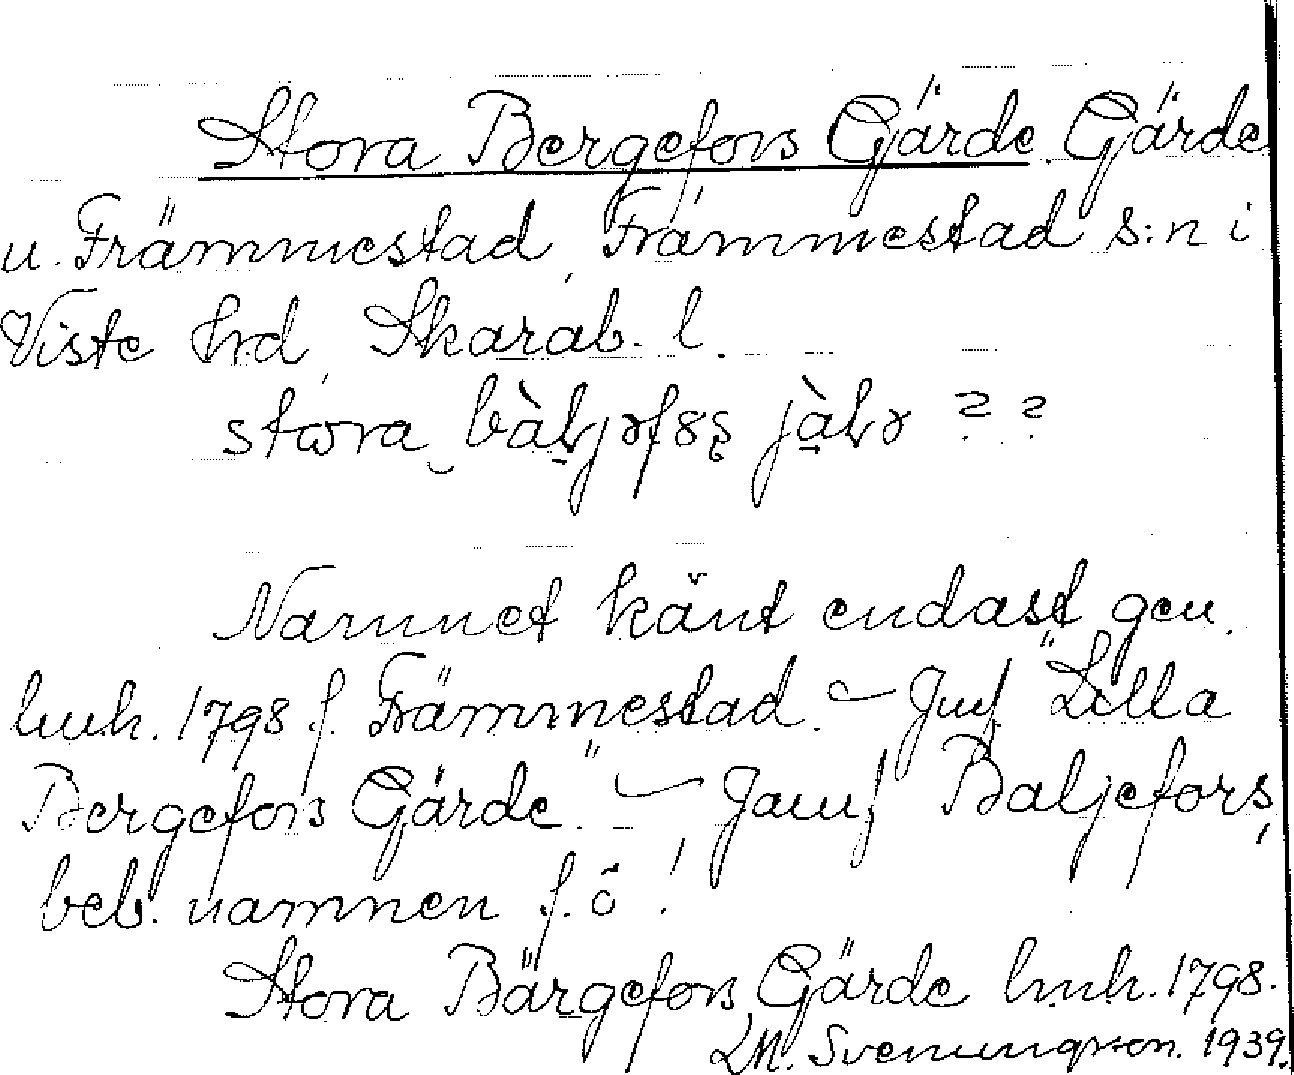 Stora Bergefors Gärde. Gärde
u. Främmestad, Främmestad s:n i
Viste hrd, Skarab. l.
Namnet känt endast gen.
lmh. 1798 f. Främmestad. – Jmf "Lilla
Bergefors Gärde". – Jämf Baljefors,
beb. namnen f. ö!
Stora Bärgefors Gärde lmh. 1798.
LM. Svenungsson. 1939.